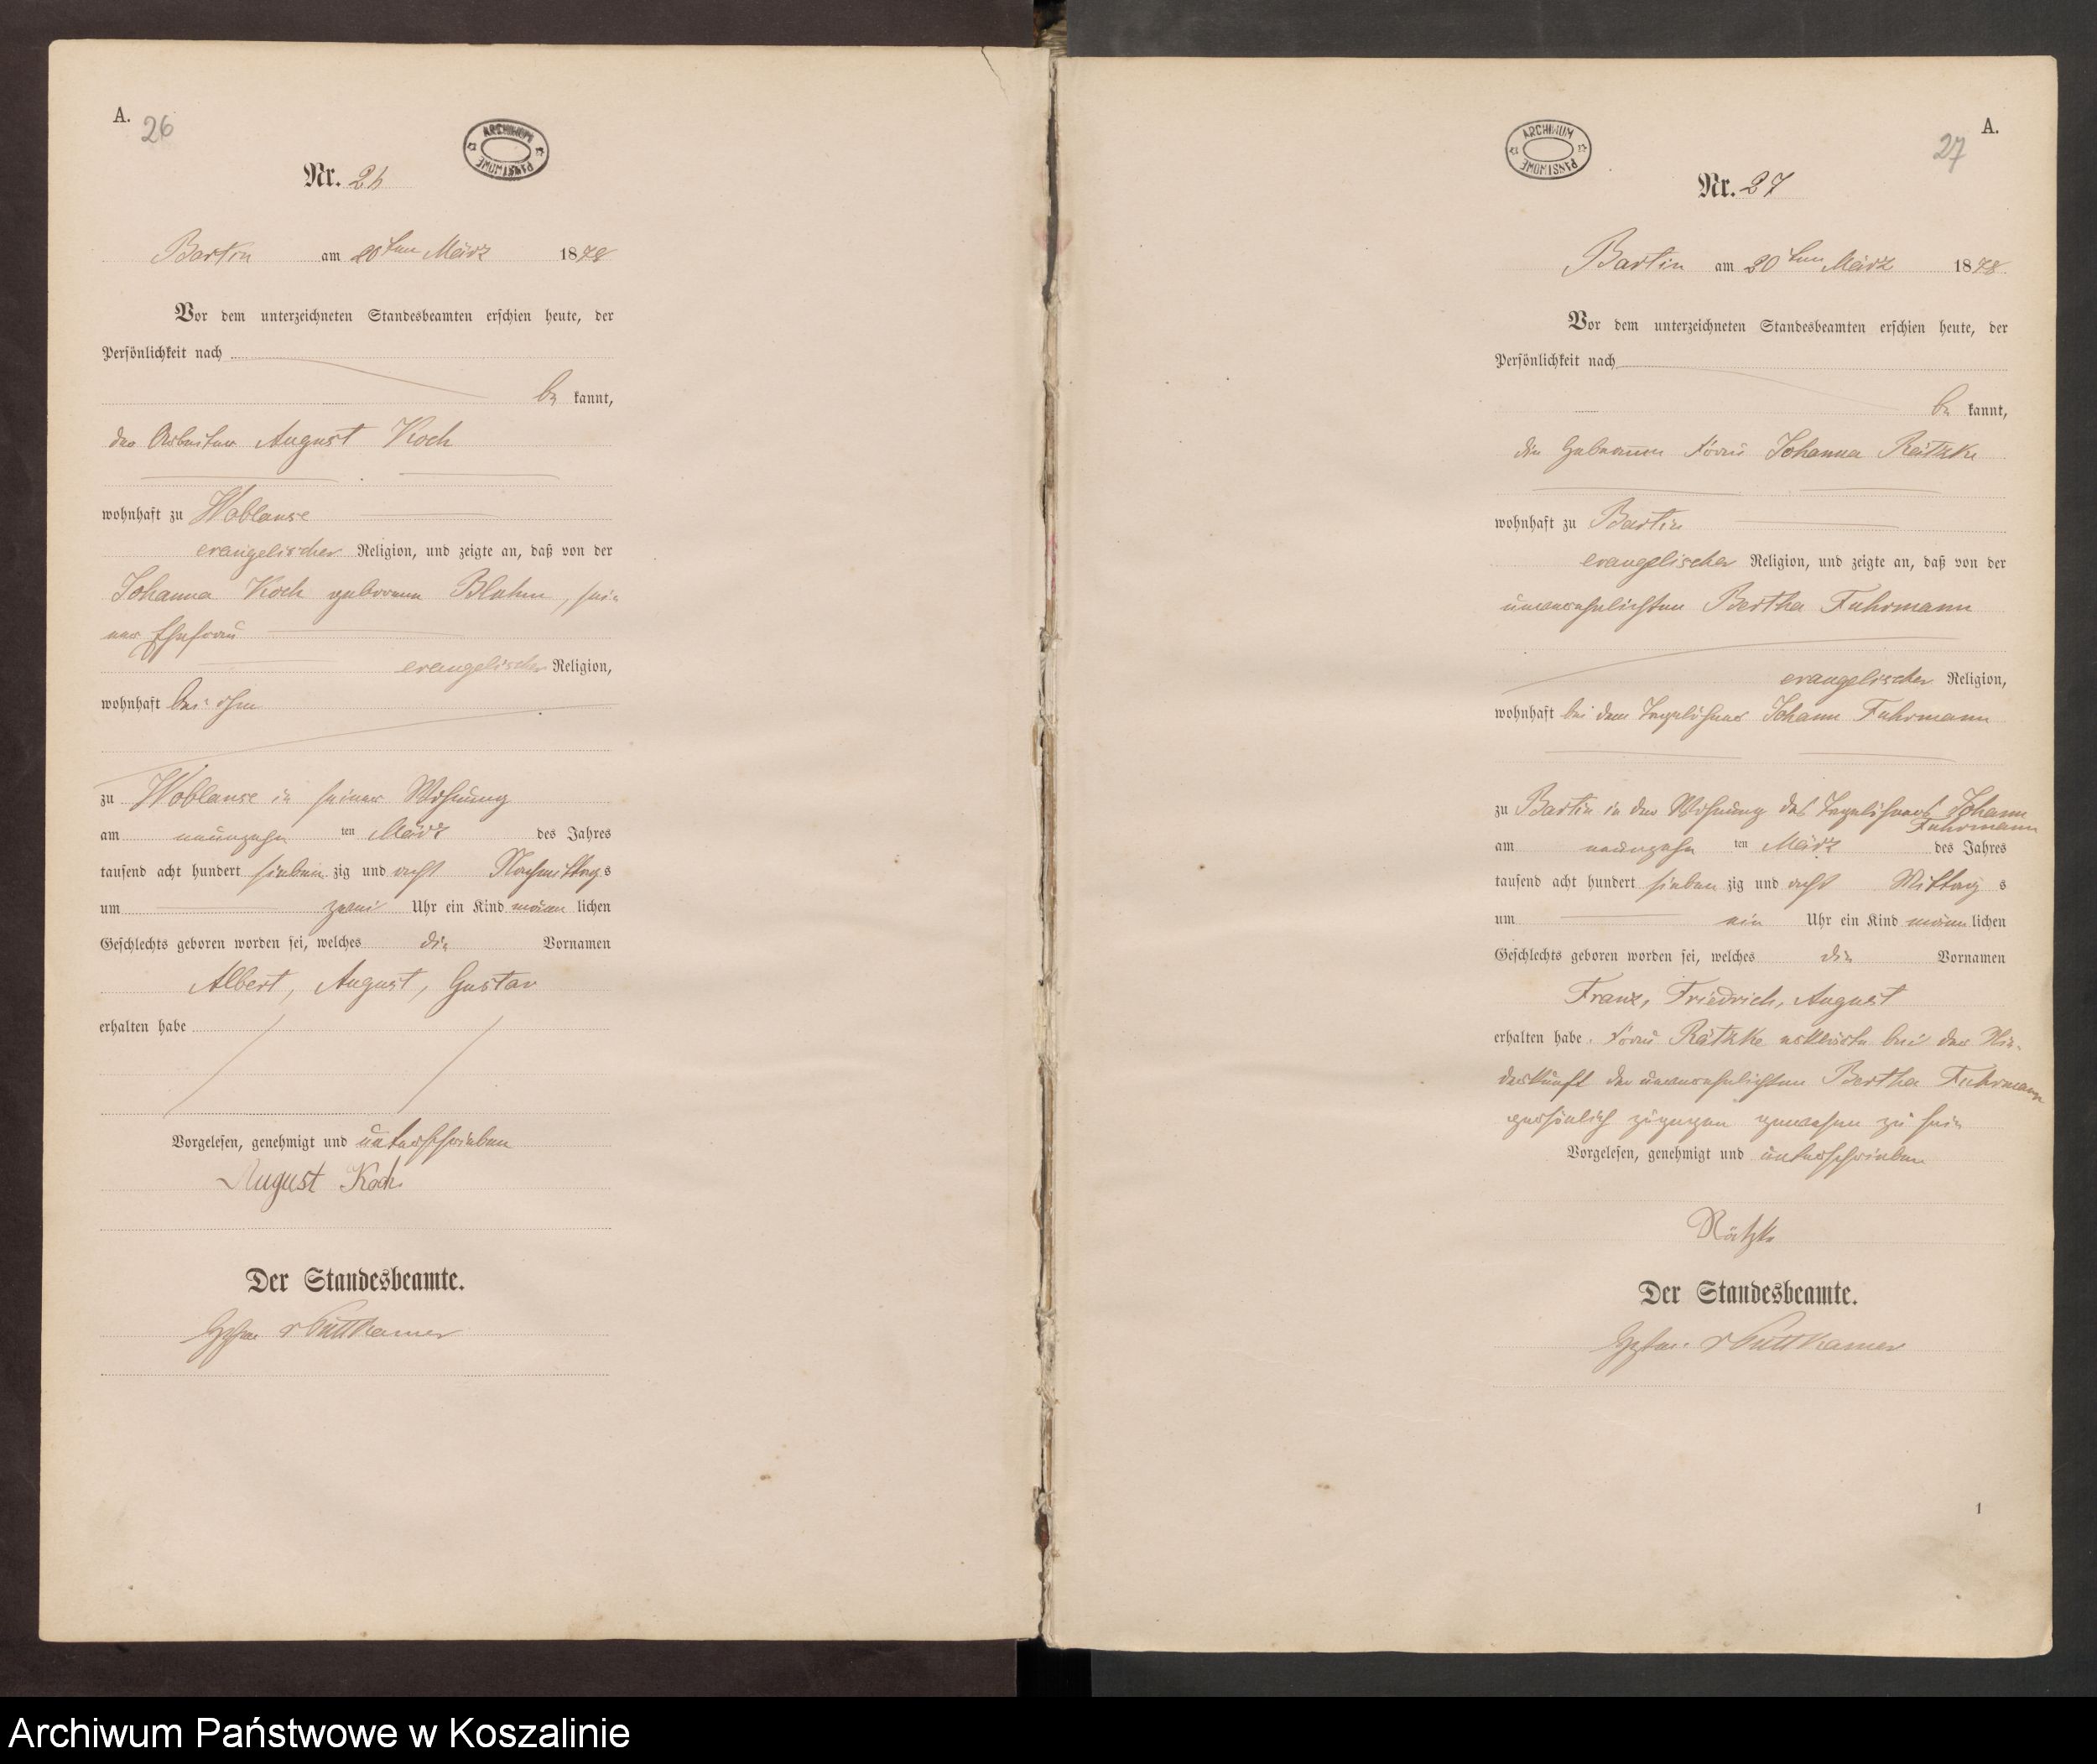 A.
26
ARCHIWUM PAŃSTWOWE
Nr. 26
Bartin am 20ten März 1878
Vor dem unterzeichneten Standesbeamten erschien heute, der
Persönlichkeit nach
be kannt,
der Arbeiter August Koch
wohnhaft zu Woblanse
evangelischer Religion, und zeigte an, daß von der
Johanna Koch geborenen Bluhm, sei-
ner Ehefrau
evangelischer Religion,
wohnhaft bei ihm
zu Woblanse in seiner Wohnung
am neunzehn ten März des Jahres
tausend acht hundert sieben zig und acht Nachmittags
um zwei Uhr ein Kind männ lichen
Geschlechts geboren worden sei, welches die Vornamen
Albert, August, Gustav
erhalten habe
Vorgelesen, genehmigt und unterschrieben
August Koch
Der Standesbeamte.
v Puttkamer
A.
27
ARCHIWUM PAŃSTWOWE
Nr. 27
Bartin am 20ten März 1878
Vor dem unterzeichneten Standesbeamten erschien heute, der
Persönlichkeit nach
be kannt,
die Hebamme Frau Johanna Rätzke
wohnhaft zu Bartin
evangelischer Religion, und zeigte an, daß von der
unverehelichten Bertha Fuhrmann
evangelischer Religion,
wohnhaft bei dem Tagelöhner Johann Fuhrmann
zu Bartin in der Wohnung des Tagelöhners Johann
Fuhrmann
am neunzehn ten März des Jahres
tausend acht hundert sieben zig und acht Mittag s
um ein Uhr ein Kind männ lichen
Geschlechts geboren worden sei, welches die Vornamen
Franz, Friedrich, August
erhalten habe. Frau Rätzke erklärte bei der Nie-
derkunft der unverehelichten Bertha Fuhrmann
persönlich zugegen gewesen zu sein
Vorgelesen, genehmigt und unterschrieben
Rätzke
Der Standesbeamte.
v Puttkamer
1
Archiwum Państwowe w Koszalinie